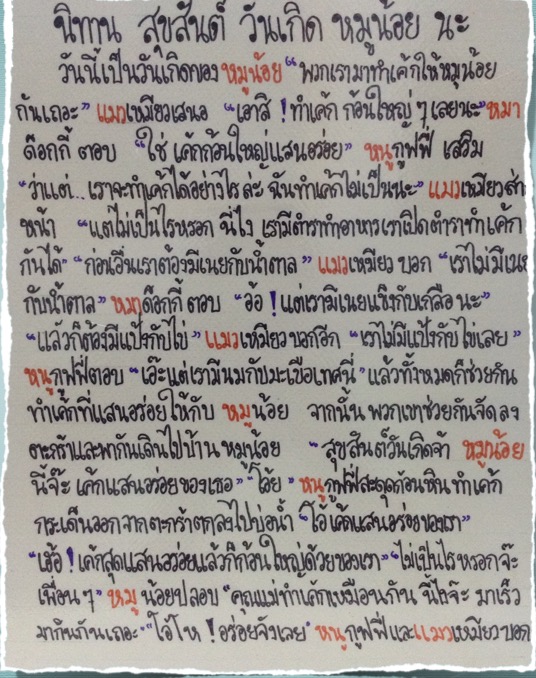 นิทาน สุขสันต์ วันเกิด หมูน้อย นะ
วันนี้เป็นวันเกิดของ หมูน้อย “พวกเรามาทำเค้กให้หมูน้อย
กันเถอะ” แมวเหมียวเสนอ “เอาสิ ! ทำเค้ก ก้อนใหญ่ ๆ เลยนะ” หมา
ด๊อกกี้ ตอบ “ใช่ เค้กก้อนใหญ่แสนอร่อย” หนูกูฟฟี่ เสริม
“ว่าแต่.. เราจะทำเค้กได้อย่างไร ล่ะ ฉันทำเค้กไม่เป็นนะ” แมวเหมียวส่าย
หน้า “แต่ไม่เป็นไรหรอก นี่ไง เรามีตำราทำอาหารเราเปิดตำราทำเค้ก
กันได้” “ก่อนอื่นเราต้องมีเนยกับน้ำตาล” แมวเหมียว บอก “เราไม่มีเนย
กับน้ำตาล” หมาด๊อกกี้ ตอบ “อ้อ ! แต่เรามีเนยแข็งกับเกลือ นะ”
“แล้วก็ต้องมีแป้งกับไข่” แมวเหมียวบอกอีก “เราไม่มีแป้งกับไข่เลย”
หนูกูฟฟี่ตอบ “เอ๊ะแต่เรามีนมกับมะเขือเทศนี่” แล้วทั้งหมดก็ช่วยกัน
ทำเค้กที่แสนอร่อยให้กับ หมูน้อย จากนั้น พวกเขาช่วยกันจัดลง
ตะกร้าและพากันเดินไปบ้าน หมูน้อย “สุขสันต์วันเกิดจ้า หมูน้อย
นี้จ๊ะ เค้กแสนอร่อยของเธอ” “โอ้ย” หนูกูฟฟี่สะดุดก้อนหิน ทำเค้ก
กระเด็นออกจากตะกร้าตกลงไปบ่อน้ำ “โอ้ เค้กแสนอร่อยของเรา”
“เฮ้อ ! เค้กสุดแสนอร่อยแล้วก็ก้อนใหญ่ด้วยของเรา” “ไม่เป็นไรหรอกจ๊ะ
เพื่อน ๆ” หมูน้อยปลอบ “คุณแม่ทำเค้กเหมือนกัน นี้ไงจ๊ะ มาเร็ว
มากินกันเถอะ” “โอ้โห ! อร่อยจังเลย” หนูกูฟฟี่และแมวเหมียวบอก